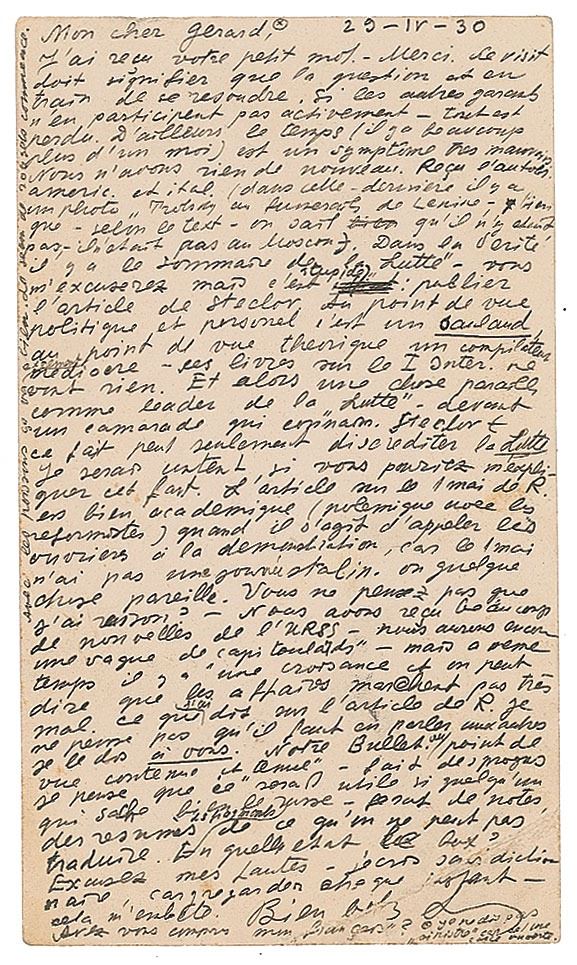 Mon cher Gerard,⊗ 29-IV-30
J'ai reçu votre petit mot. - Merci. Le visit
doit signifier que la question est en
train de se resoudre. Si les autres garants
n'en participent pas activement - tout est
perdu. D'ailleurs le temps (il y a beaucoup
plus d'un mois) est un symptôme tres mauvais
Nous n'avons rien de nouveau. Reçu l'autob.
americ. et ital. (dans celle-dernière il y a
un photo "Trotsky au funerailles de Lenine,
que - selon le text - on sait qu'il n'y etait
pas - il n'était pas au Moscou). Dans la Verité
il y a le sommaire de la "Lutte" - vous
m'excuserez mais c'est stupide: publier
l'article de Steclov. Du point de vue
politique et personel c'est un salaud,
au point de vue theorique un compilateur
mediocre - ses livres sur le I Inter. ne
vont rien. Et alors une chose pareille
comme leader de la "Lutte" - devant
un camarade qui connait Steclov
ce fait peut seulement discrediter la Lutte
Je serais content, si vous pouviez m'expli-
quer cet fait. L'article sur le 1 mai de R.
est bien academique (polemique avec les
reformistes) quand il s'agit d'appeler les
ouvriers à la demonstration, car le 1 mai
n'ai pas une on quelque
chose pareille. Vous ne pensez pas que
j'ai raison? - Nous avons reçu beaucoup
de nouvelles de l'URSS - nous aurons encore
une vague de "capitoulards" - mais a meme
temps il y a une croissance et on peut
dire que les affaires marchent pas très
mal. Ce que j'ai dit sur l'article de R. je
ne pense pas qu'il faut en parler aux autres
je le dis à vous. Notre Bullet. (au point de
vue contenu et tenue) - fait des progrès
Je pense que ce serait utile si quelqu'un
qui sache bien le russe - ferait de notes,
des resumes, les fragments de ce qu'on ne peut pas
traduire. En quelle etat box?
Excusez mes fautes - j'ecris sans diction
naire car regarder chaque instant -
cela m'embête. Bien
Avez vous compris mon français"? ⊗ je ne dis pas